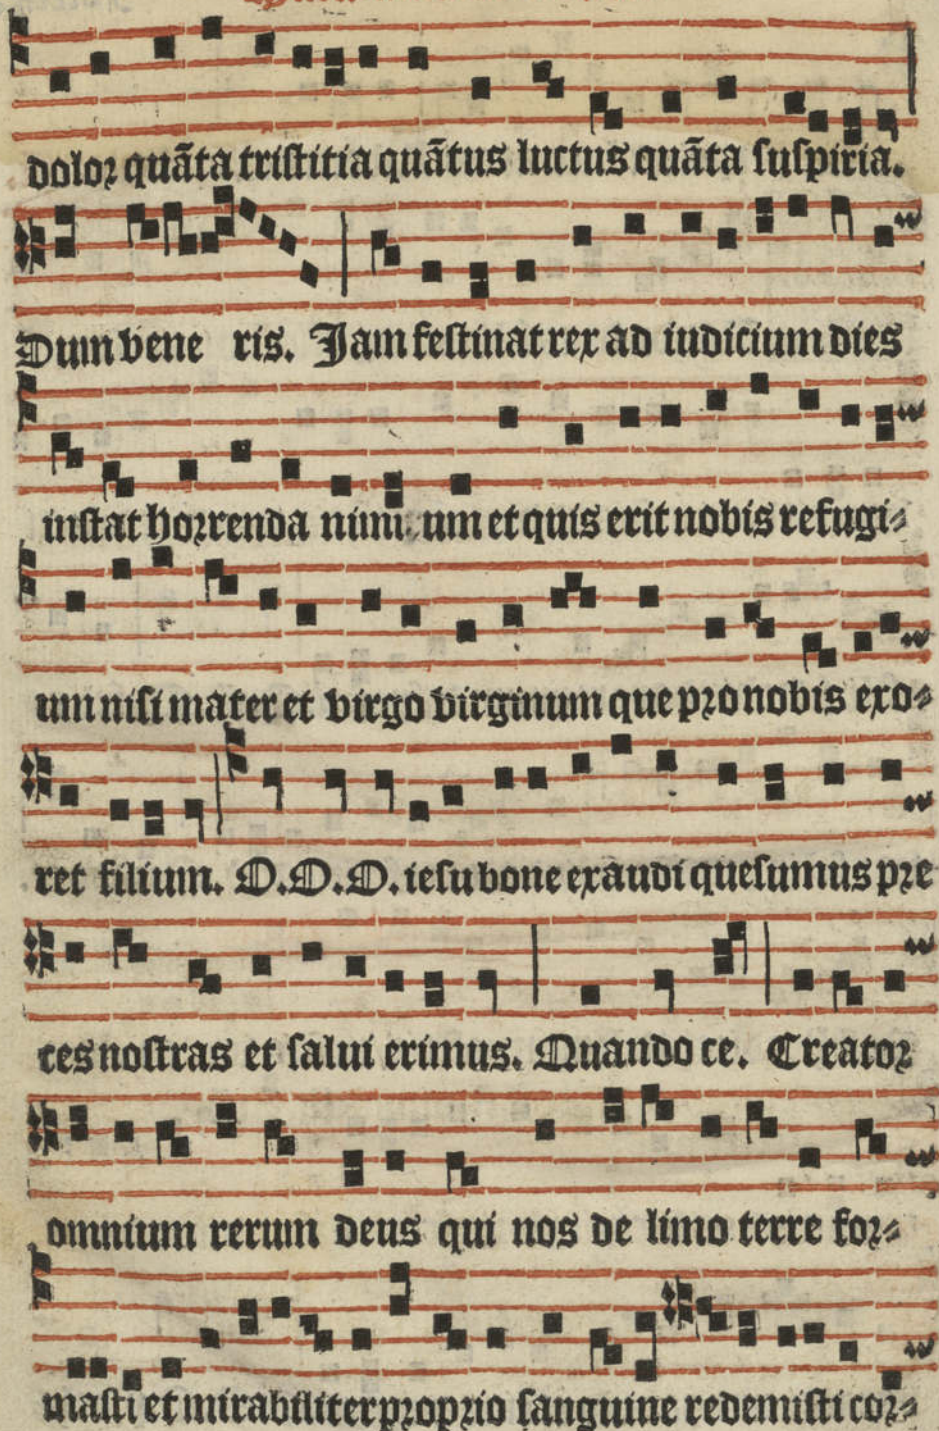 dolor quãta tristitia quãtus luctus quãta suspiria.
Dum vene ris. Jam festinat rex ad iudicium dies
instat horrenda nimi um et quis erit nobis refugi-
um nisi mater et virgo virginum que pro nobis exo-
ret filium. O.O.O. iesu bone exaudi quesumus pre
ces nostras et salui erimus. Quando ce. Creator
omnium rerum deus qui nos de limo terre for-
masti et mirabiliter proprio sanguine redemisti cor-